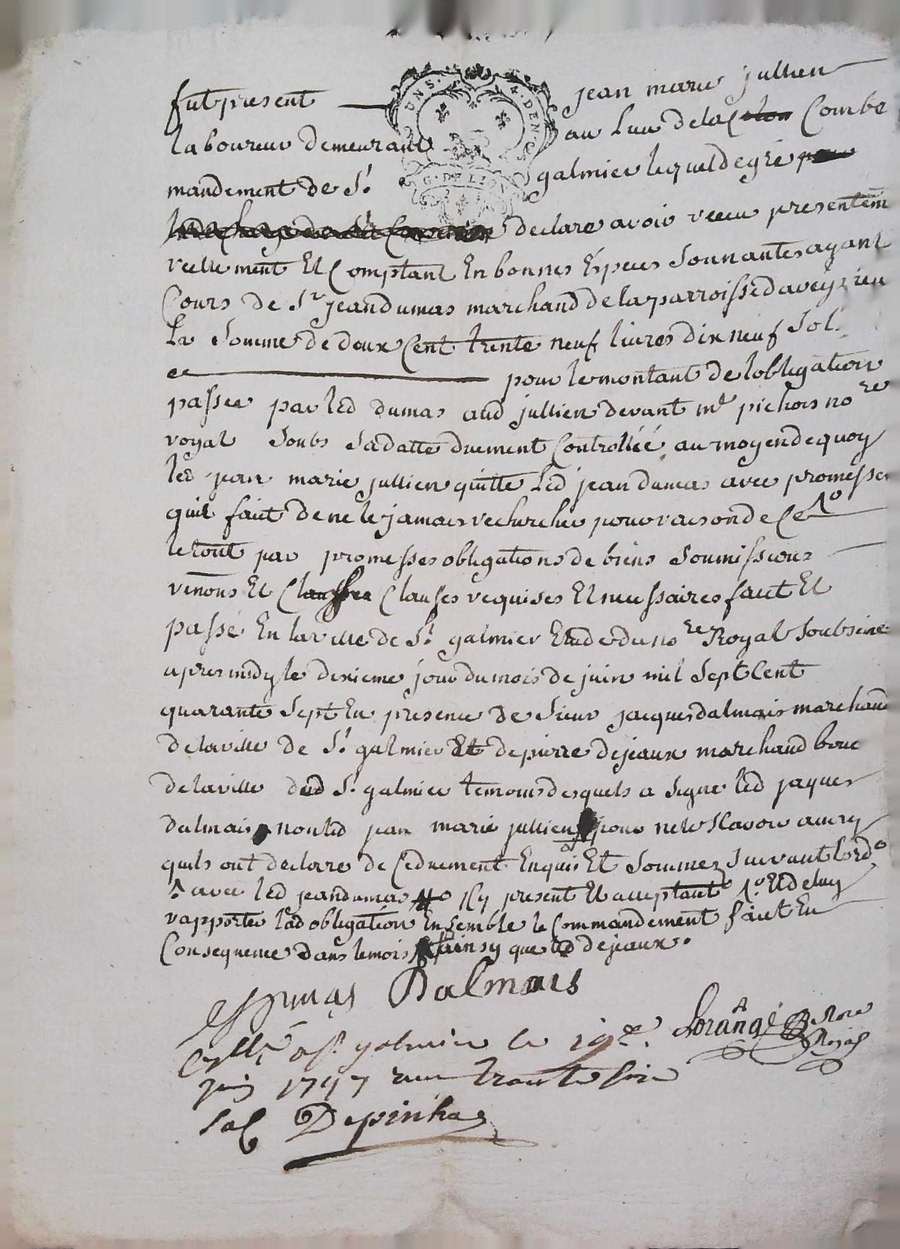 UNS. 4. DEN. G. DE LION
fut present — jean marie jullien
laboureur demeurant au lieu de la Combe
mandement de St. galmier lequel de gré
declare avoir receu presentem
reellement Et Comptant En bonnes Espéces Sonnantes ayant
Cours de Sr. jean dumas marchand de la parroisse d aveyzieu
La Somme de deux Cent trente neuf livres dix neuf Sol.
— pour le montant de lobligation
passée par led dumas aud jullien devant me pichois nore
royal Soubs Sa datte duement Controllée, au moyen de quoy
led jean marie jullien quitte Led jean dumas avec promesse
quil fait de ne le jamais rechercher pour raison de Ce
le tout par promesses obligations de biens Soumissions
renons Et Clauses requises Et necessaires fait Et
passé En la ville de St. galmier Etude du nore Royal Soubsine
apres midy le dixieme jour du mois de juin mil Sept Cent
quarante Sept En presence de Sieur jacques dalmais marchand
de la ville de St. galmier Et de pierre dejeaux marchand bouc
de la ville dud St. galmier temoins desquels a Signe led jaques
dalmais non led jean marie jullien pour ne le Scavoir
quils ont declare de Ce duement Enquis Et Sommez Suivant lordo
avec led jean dumas Icy present Et acceptant Et deluy
rapporter lad obligation Ensemble le Commandement fait En
Consequence dans le mois ainsy que led dejeaux.
Dalmais
Lorange Nore Royal
a St. galmier le 19e
juin 1747 treute Six
Sol Depinhac